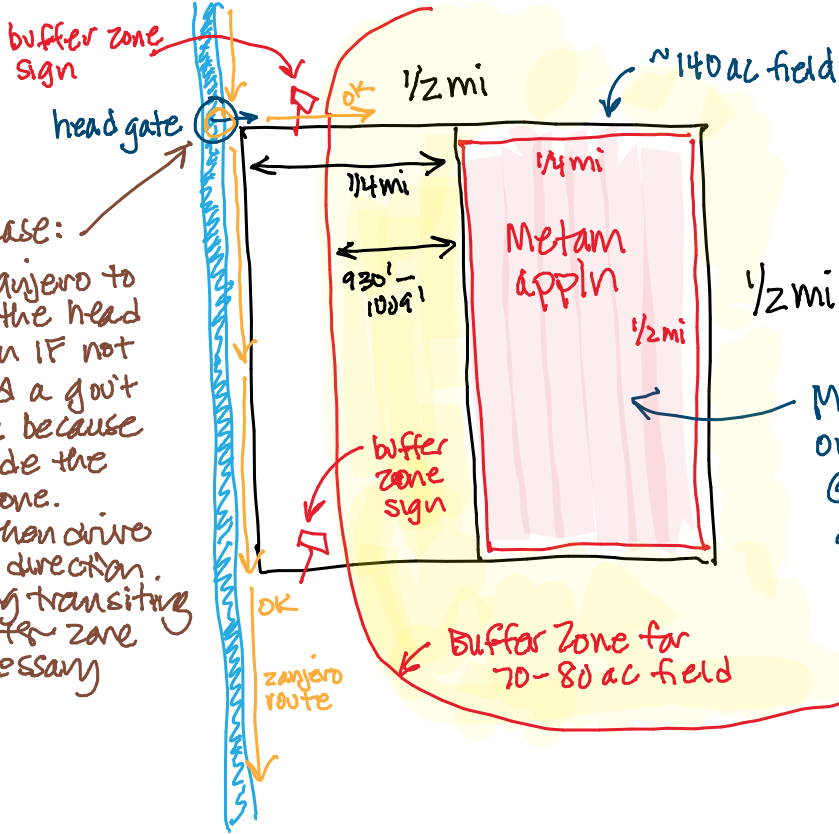 buffer zone
sign
1/2 mi
OK
~140 ac field
head gate
1/4 mi
1/4 mi
Metam
appln
930' –
1009'
1/2 mi
1/2 mi
ase:
anjero to
the head
n IF not
a gov't
because
de the
one.
hen drive
direction.
g transiting
zone
essary
buffer
zone
sign
OK
zanjero
route
Buffer Zone for
70-80 ac field